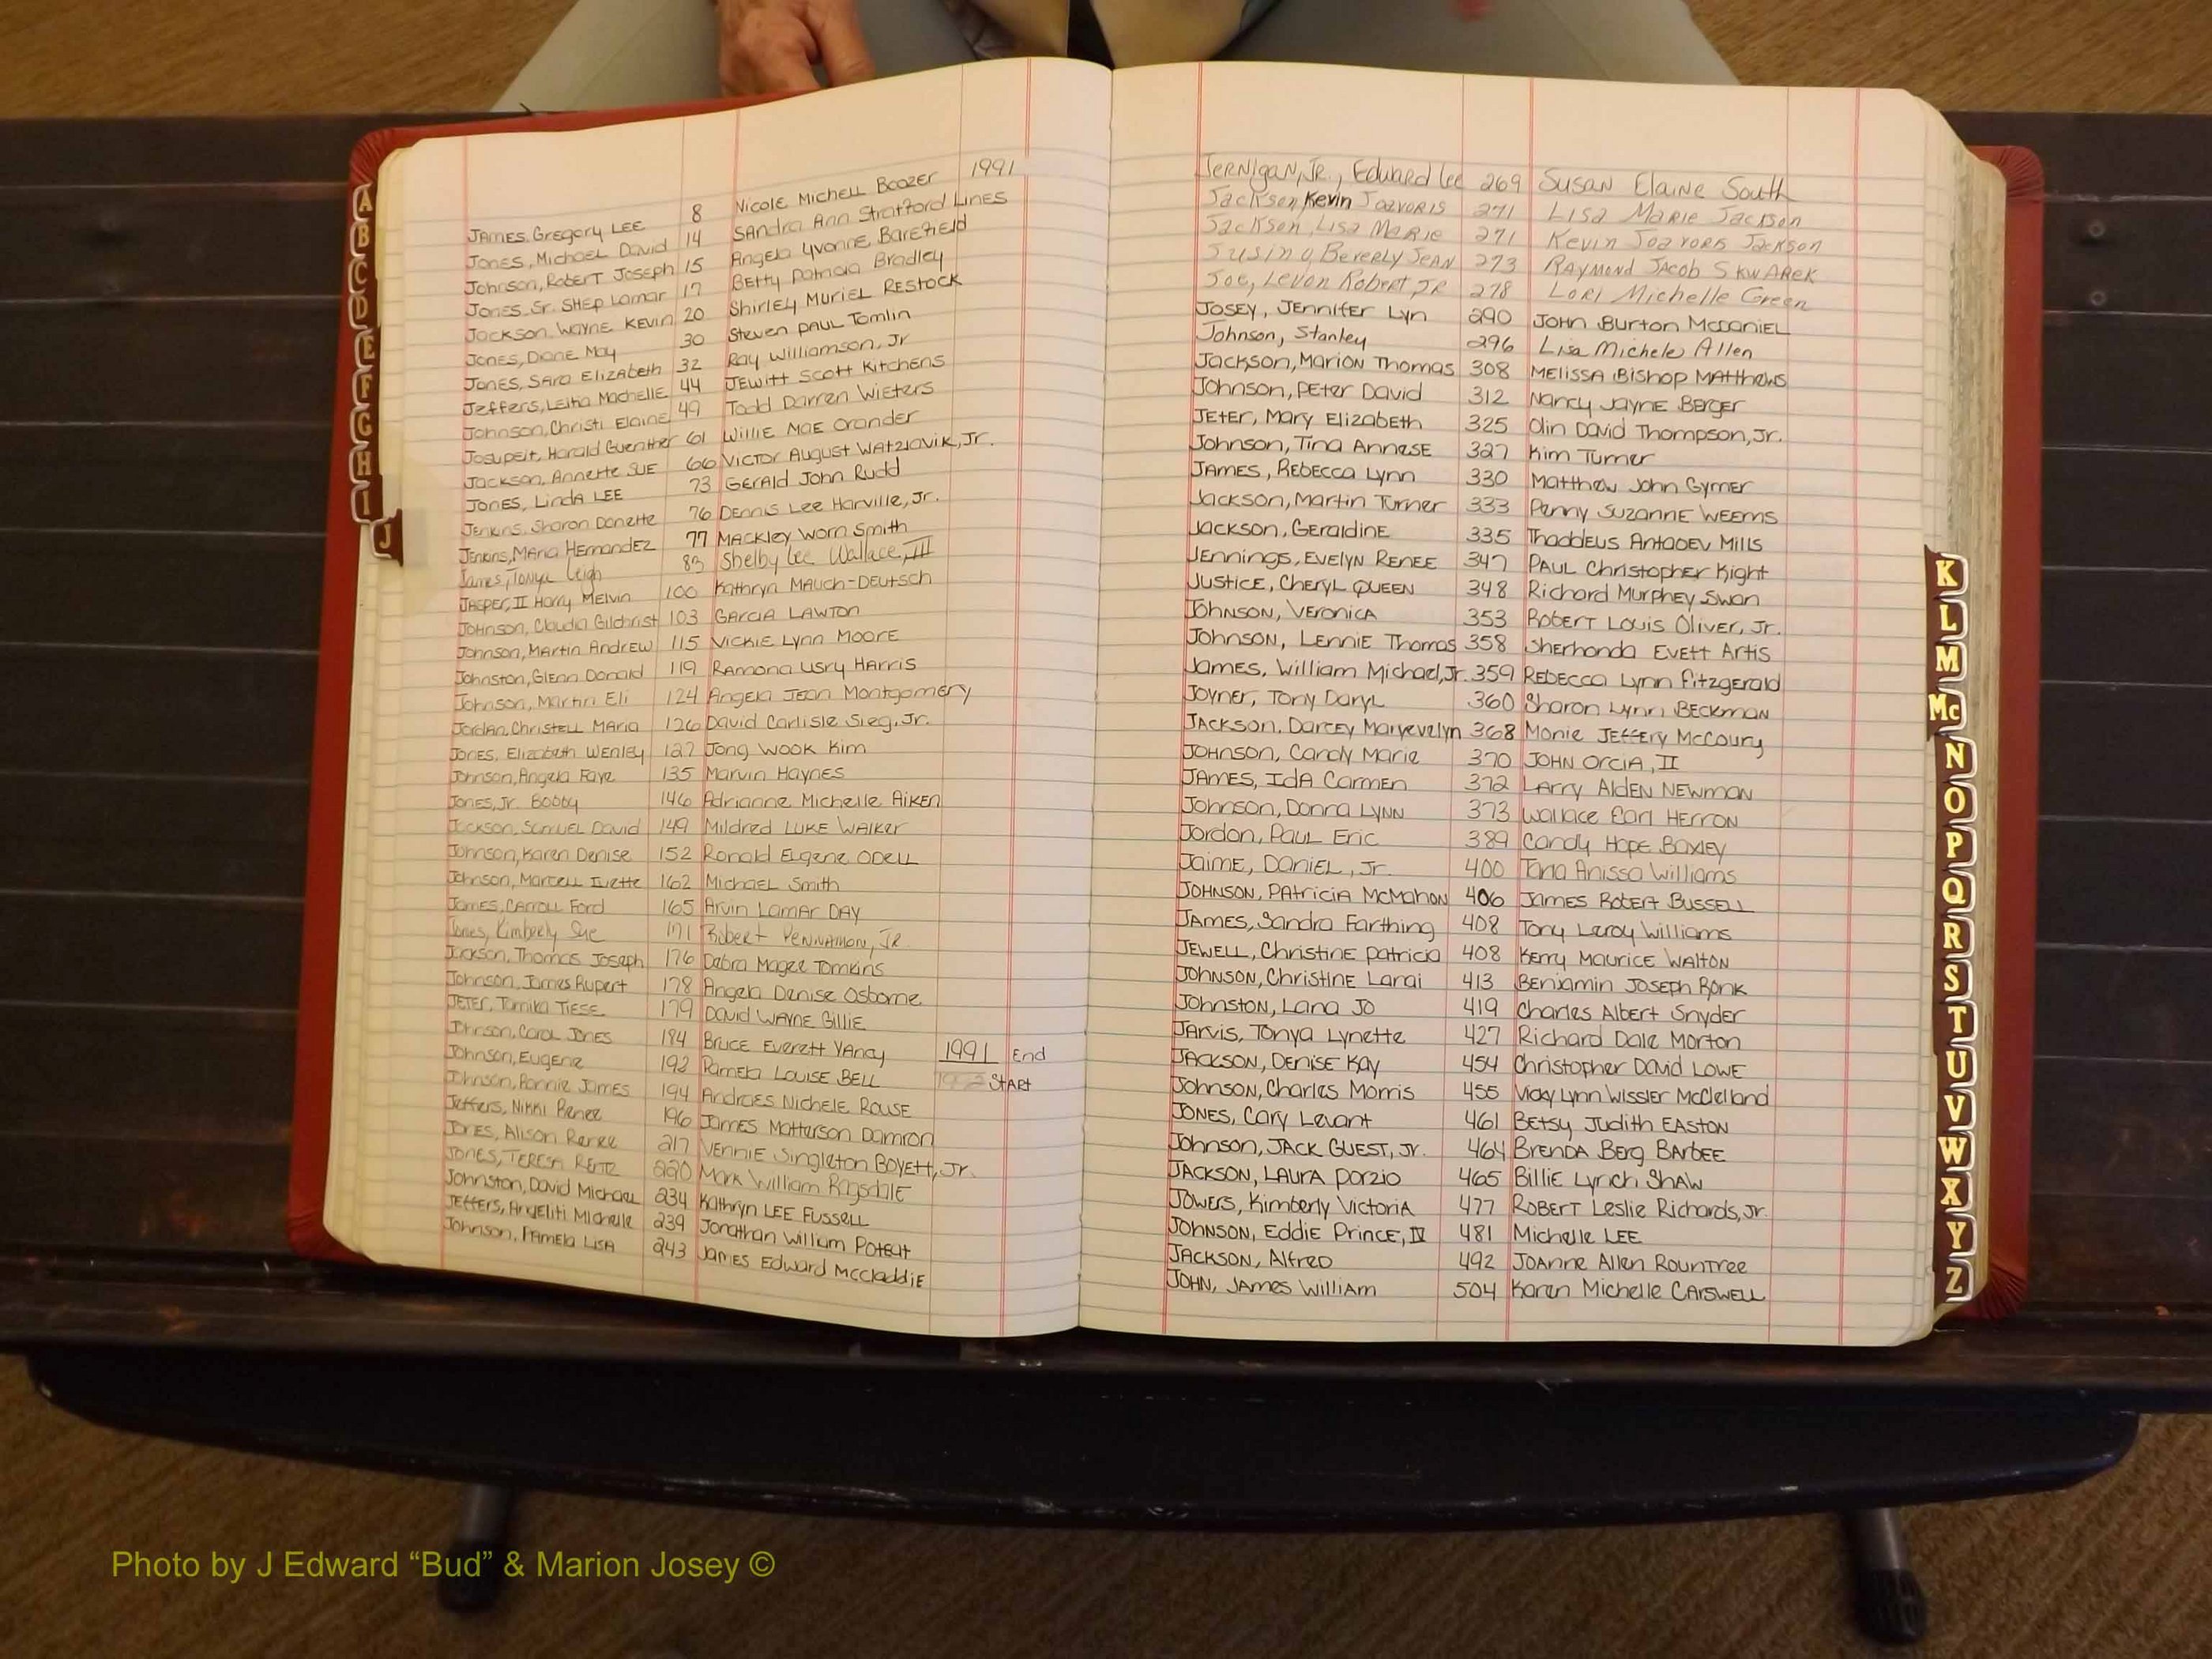 1991
JAMES, Gregory LEE 8 Nicole Michell Boozer
Jones, Michael David 14 Sandra Ann Stratford Lines
Johnson, Robert Joseph 15 Angela Yvonne Barefield
Jones, Sr. Shep Lamar 17 Betty Patricia Bradley
Jackson, Wayne Kevin 20 Shirley Muriel Restock
Jones, Diane May 30 Steven Paul Tomlin
Jones, Sara Elizabeth 32 Ray Williamson, Jr
Jeffers, Leitha Machelle 44 Jewitt Scott Kitchens
Johnson, Christi Elaine 49 Todd Darren Wieters
Josupeit, Harald Guenther 61 Willie Mae Orander
Jackson, Annette Sue 66 Victor August Watzlavik, Jr.
Jones, Linda Lee 73 Gerald John Rudd
Jenkins, Sharon Danette 76 Dennis Lee Harville, Jr.
Jenkins, Maria Hernandez 77 Mackley Worn Smith
James, Tonya Leigh 83 Shelby Lee Wallace, III
Jasper, II Harry Melvin 100 Kathryn Mauch-Deutsch
Johnson, Claudia Gilchrist 103 Garcia Lawton
Johnson, Martin Andrew 115 Vickie Lynn Moore
Johnston, Glenn Donald 119 Ramona Usry Harris
Johnson, Martin Eli 124 Angela Jean Montgomery
Jordan, Christell Maria 126 David Carlisle Sieg, Jr.
Jones, Elizabeth Wenley 127 Jong Wook Kim
Johnson, Angela Faye 135 Marvin Haynes
Jones, Jr. Bobby 146 Adrianne Michelle Aiken
Jackson, Samuel David 149 Mildred Luke Walker
Johnson, Karen Denise 152 Ronald Eugene Odell
Johnson, Marcell Ivette 162 Michael Smith
James, Carroll Ford 165 Arvin Lamar Day
Jones, Kimberly Sue 171 Robert Pennamon, Jr
Jackson, Thomas Joseph 176 Debra Magee Tomkins
Johnson, James Rupert 178 Angela Denise Osborne
Jeter, Tomika Tiese 179 David Wayne Gillie
Johnson, Carol Jones 184 Bruce Everett Yancy 1991 End
Johnson, Eugene 192 Pamela Louise Bell 1992 Start
Johnson, Ronnie James 194 Andraes Nichele Rouse
Jeffers, Nikki Renee 196 James Matterson Damron
Jones, Alison Renee 217 Vennie Singleton Boyett, Jr.
Jones, Teresa 220 Mark William Ragsdale
Johnston, David Michael 234 Kathryn Lee Fussell
Jeffers, Angeliti Michelle 239 Jonathan William Poteat
Johnson, Pamela Lisa 243 James Edward McCladdie
Jernigan, Jr., Edward Lee 269 Susan Elaine South
Jackson, Kevin Joavoris 271 Lisa Marie Jackson
Jackson, Lisa Marie 271 Kevin Joavoris Jackson
Jusino, Beverly Jean 273 Raymond Jacob Skwarek
Joe, Levon Robert, Jr 278 Lori Michelle Green
Josey, Jennifer Lyn 290 John Burton McDaniel
Johnson, Stanley 296 Lisa Michele Allen
Jackson, Marion Thomas 308 Melissa Bishop Matthews
Johnson, Peter David 312 Nancy Jayne Berger
Jeter, Mary Elizabeth 325 Olin David Thompson, Jr.
Johnson, Tina Annese 327 Kim Turner
James, Rebecca Lynn 330 Matthew John Gymer
Jackson, Martin Turner 333 Penny Suzanne Weems
Jackson, Geraldine 335 Thaddeus Antaoev Mills
Jennings, Evelyn Renee 347 Paul Christopher Kight
Justice, Cheryl Queen 348 Richard Murphey Swan
Johnson, Veronica 353 Robert Louis Oliver, Jr.
Johnson, Lennie Thomas 358 Sherhonda Evett Artis
James, William Michael, Jr. 359 Rebecca Lynn Fitzgerald
Joyner, Tony Daryl 360 Sharon Lynn Beckman
Jackson, Darcey Maryevelyn 368 Monie Jeffery McCoury
Johnson, Candy Marie 370 John Orcia, II
James, Ida Carmen 372 Larry Alden Newman
Johnson, Donna Lynn 373 Wallace Earl Herron
Jordon, Paul Eric 389 Candy Hope Baxley
Jaime, Daniel, Jr. 400 Tana Anissa Williams
Johnson, Patricia McMahon 406 James Robert Bussell
James, Sandra Farthing 408 Tony Leroy Williams
Jewell, Christine Patricia 408 Kerry Maurice Walton
Johnson, Christine Larai 413 Benjamin Joseph Ronk
Johnston, Lana Jo 419 Charles Albert Snyder
Jarvis, Tonya Lynette 427 Richard Dale Morton
Jackson, Denise Kay 454 Christopher David Lowe
Johnson, Charles Morris 455 Vicky Lynn Wissler McClelland
Jones, Cary Levant 461 Betsy Judith Easton
Johnson, Jack Guest, Jr. 464 Brenda Berg Barbee
Jackson, Laura Porzio 465 Billie Lynch Shaw
Jowers, Kimberly Victoria 477 Robert Leslie Richards, Jr.
Johnson, Eddie Prince, IV 481 Michelle Lee
Jackson, Alfred 492 JoAnne Allen Rountree
John, James William 504 Karen Michelle Carswell
A
B
C
D
E
F
G
H
I
J
K
L
M
Mc
N
O
P
Q
R
S
T
U
V
W
X
Y
Z
Photo by J Edward “Bud” & Marion Josey ©